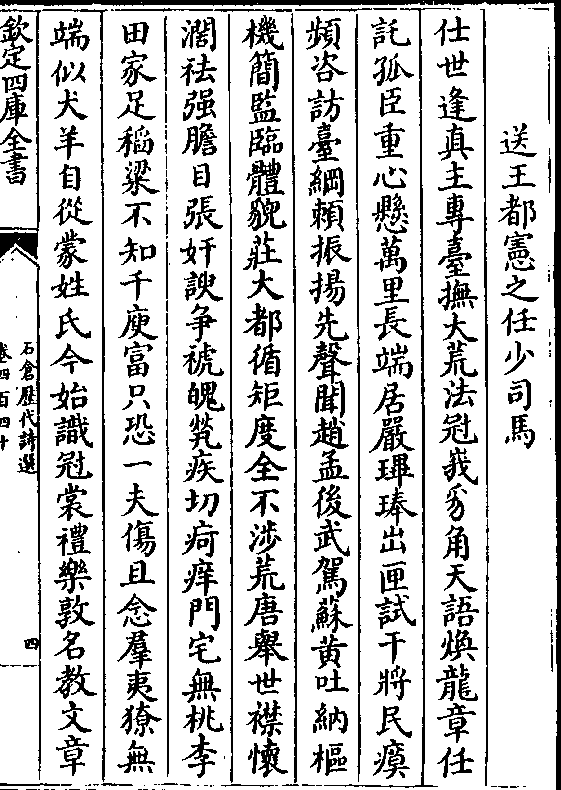 送王都憲之任少司馬
仕世逢真主專臺撫大荒法冠峩豸角天語煥龍章任
託孤臣重心懸萬里長端居嚴琿琫出匣試干將民瘼
頻咨訪臺綱頼振揚先聲聞趙孟後武駕蘇黄吐納樞
機簡監臨體貌莊大都循矩度全不涉荒唐舉世襟懷
濶祛强膽目張奸諛争褫魄煢疾切疴痒門宅無桃李
田家足稻粱不知千庾富只恐一夫傷且念羣夷獠無
端似犬羊自從蒙姓氏今始識冠裳禮樂敦名教文章
欽定四庫全書
石倉歴代詩選
卷四百四十
四